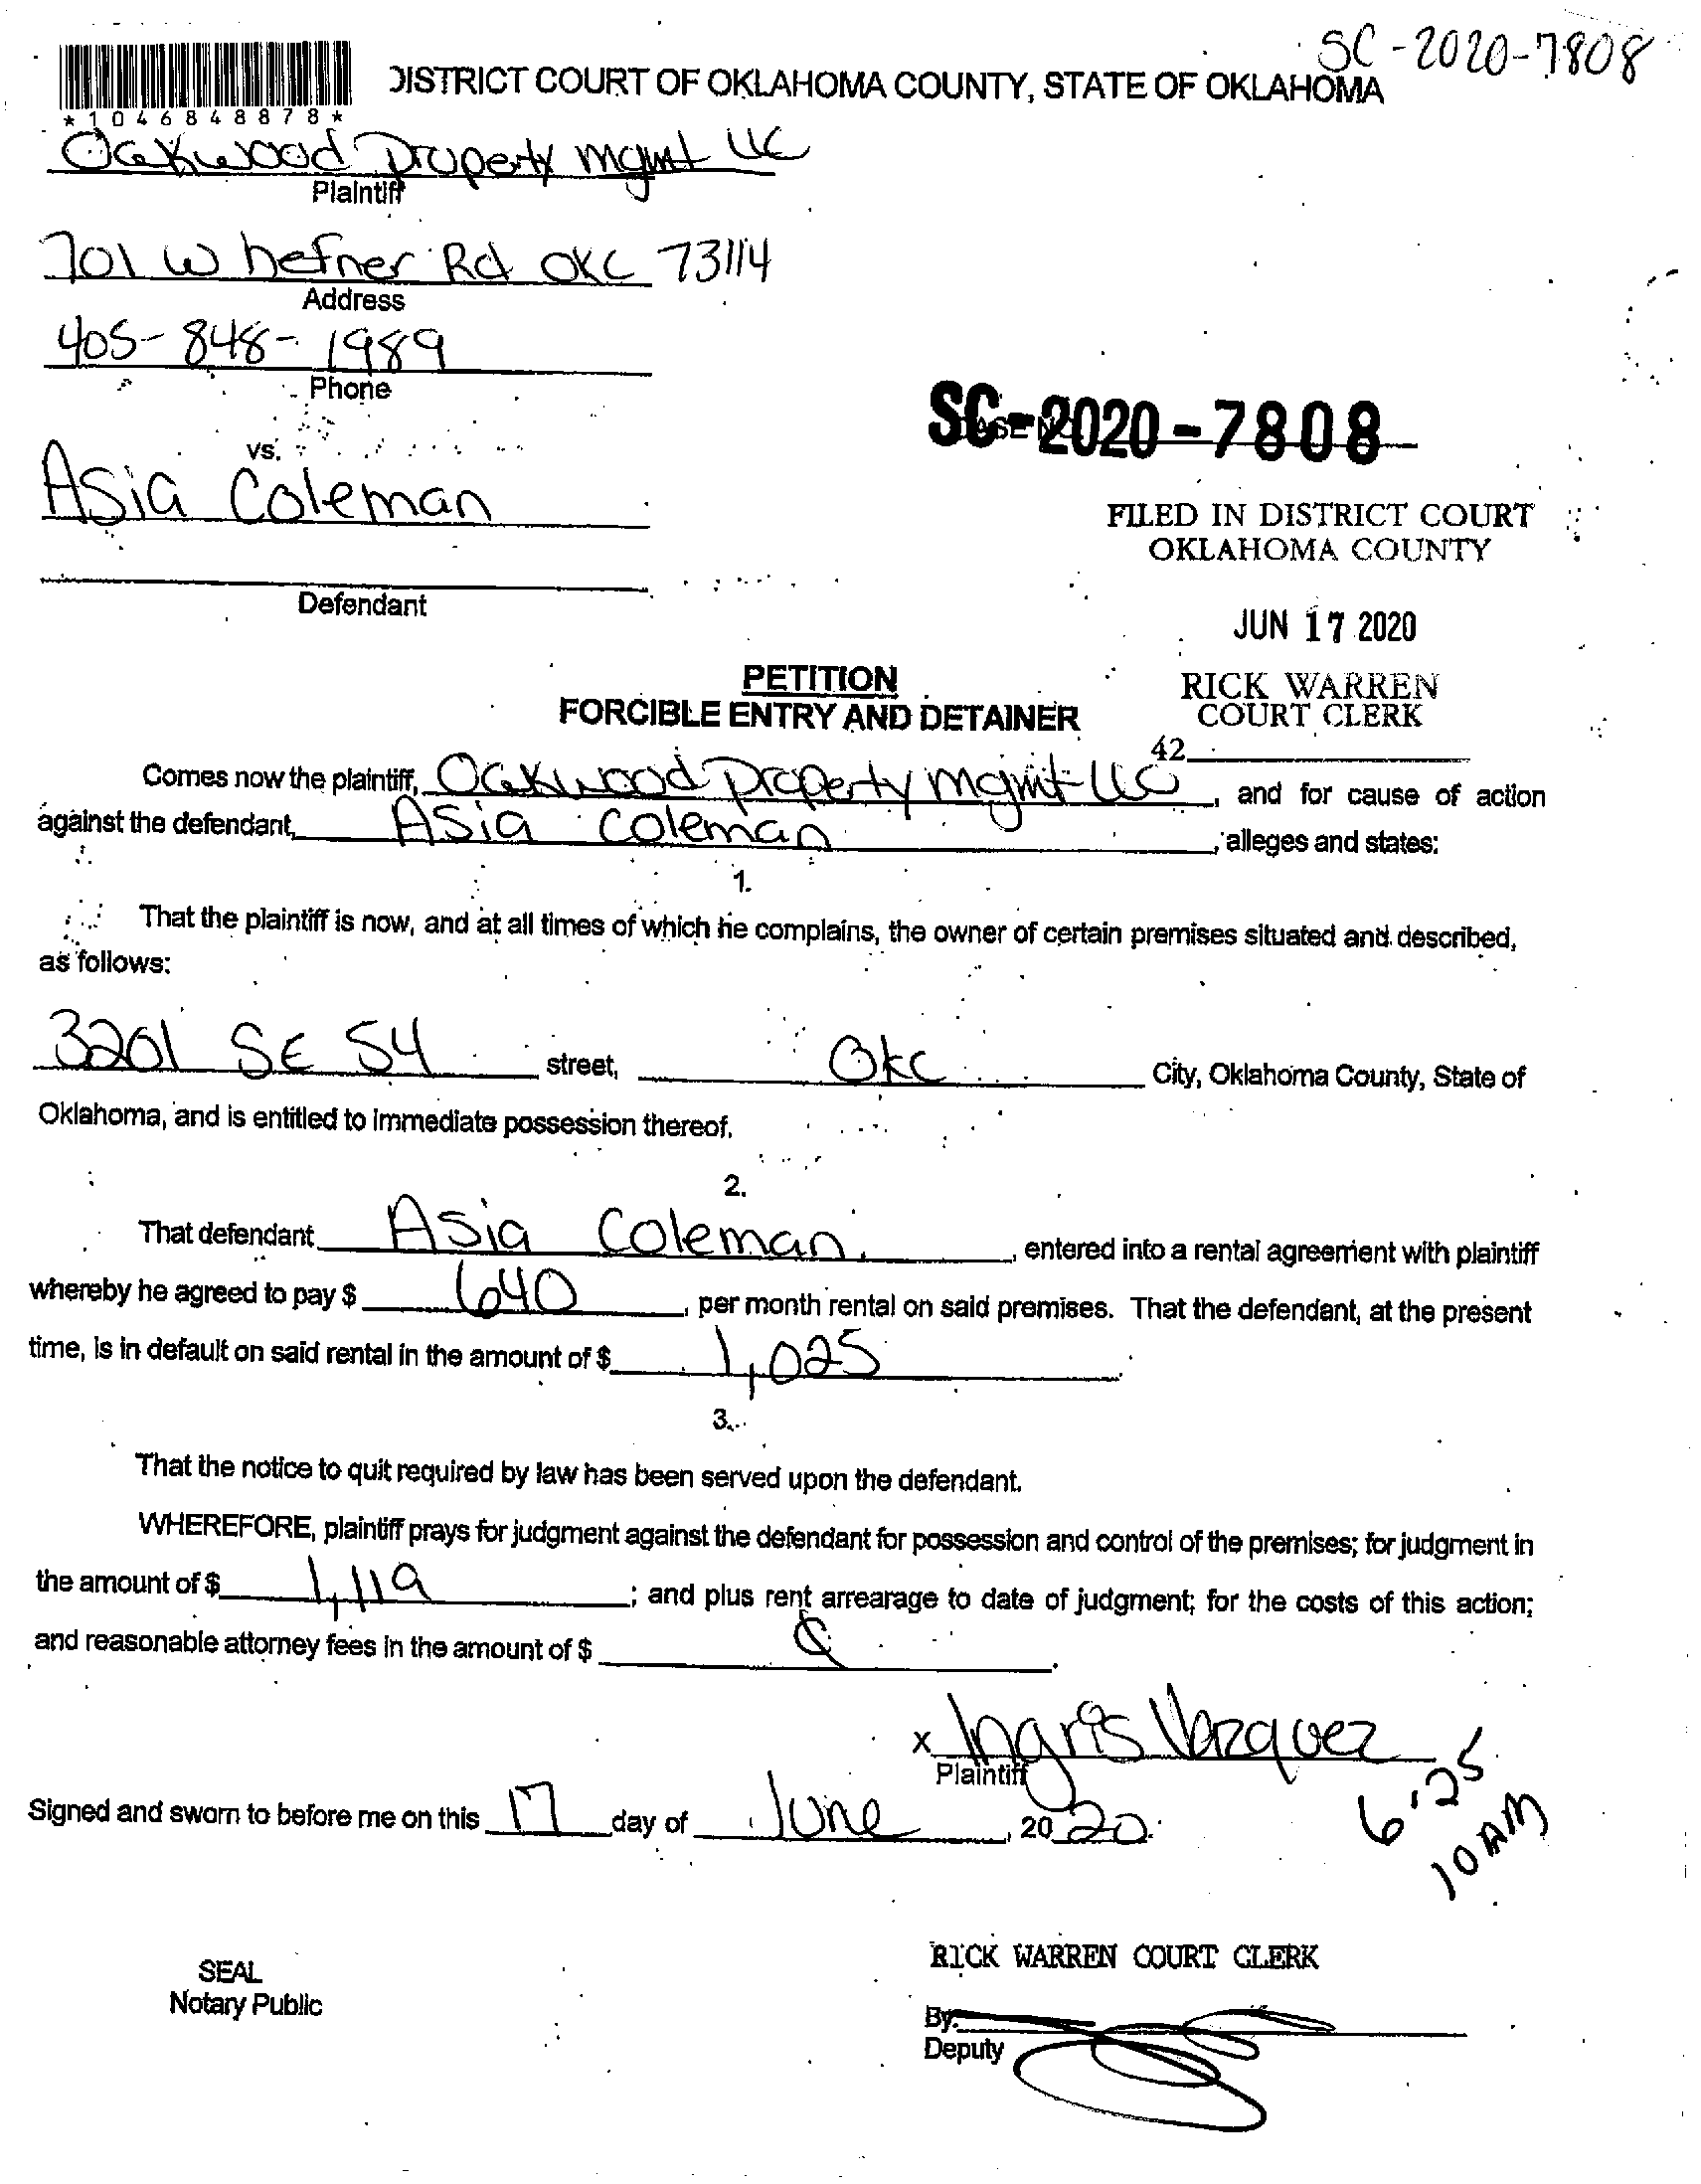 SC-2020-7808
DISTRICT COURT OF OKLAHOMA COUNTY, STATE OF OKLAHOMA
*1046848878*
Oakwood Property mgmt LLC
Plaintiff
701 W hefner Rd OKC 73114
Address
405-848-1989
Phone
vs.
SC-2020-7808
Asia Coleman
FILED IN DISTRICT COURT
OKLAHOMA COUNTY
Defendant
JUN 17 2020
PETITION
FORCIBLE ENTRY AND DETAINER
RICK WARREN
COURT CLERK
42
Comes now the plaintiff, Oakwood Property mgmt LLC, and for cause of action
against the defendant, Asia Coleman, alleges and states:
1.
That the plaintiff is now, and at all times of which he complains, the owner of certain premises situated and described,
as follows:
3201 SE 54 street, OKC City, Oklahoma County, State of
Oklahoma, and is entitled to immediate possession thereof.
2.
That defendant Asia Coleman, entered into a rental agreement with plaintiff
whereby he agreed to pay $ 640, per month rental on said premises. That the defendant, at the present
time, is in default on said rental in the amount of $ 1,025.
3.
That the notice to quit required by law has been served upon the defendant.
WHEREFORE, plaintiff prays for judgment against the defendant for possession and control of the premises; for judgment in
the amount of $ 1,119; and plus rent arrearage to date of judgment; for the costs of this action;
and reasonable attorney fees in the amount of $
x Ingris Vazquez
Plaintiff
6-25
10 AM
Signed and sworn to before me on this 17 day of June, 2020.
RICK WARREN COURT CLERK
SEAL
Notary Public
By:
Deputy